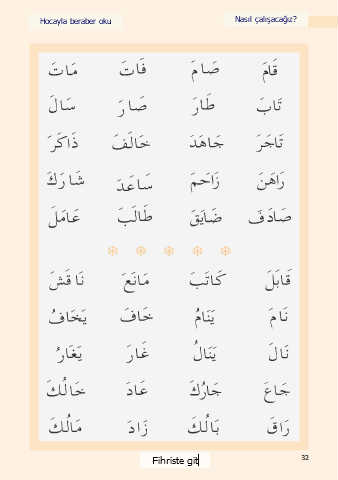 Hocayla beraber oku
Nasıl çalışacağız?
قَامَ صَامَ فَاتَ مَاتَ
تَابَ طَارَ صَارَ سَالَ
تَاجَرَ جَاهَدَ خَالَفَ ذَاكَرَ
رَاهَنَ زَاحَمَ سَاعَدَ شَارَكَ
صَادَفَ ضَايَقَ طَالَبَ عَامَلَ
قَابَلَ كَاتَبَ مَانَعَ نَاقَشَ
نَامَ يَنَامُ خَافَ يَخَافُ
نَالَ يَنَالُ غَارَ يَغَارُ
جَاعَ جَارُكَ عَادَ خَالُكَ
رَاقَ بَالُكَ زَادَ مَالُكَ
Fihriste git
32